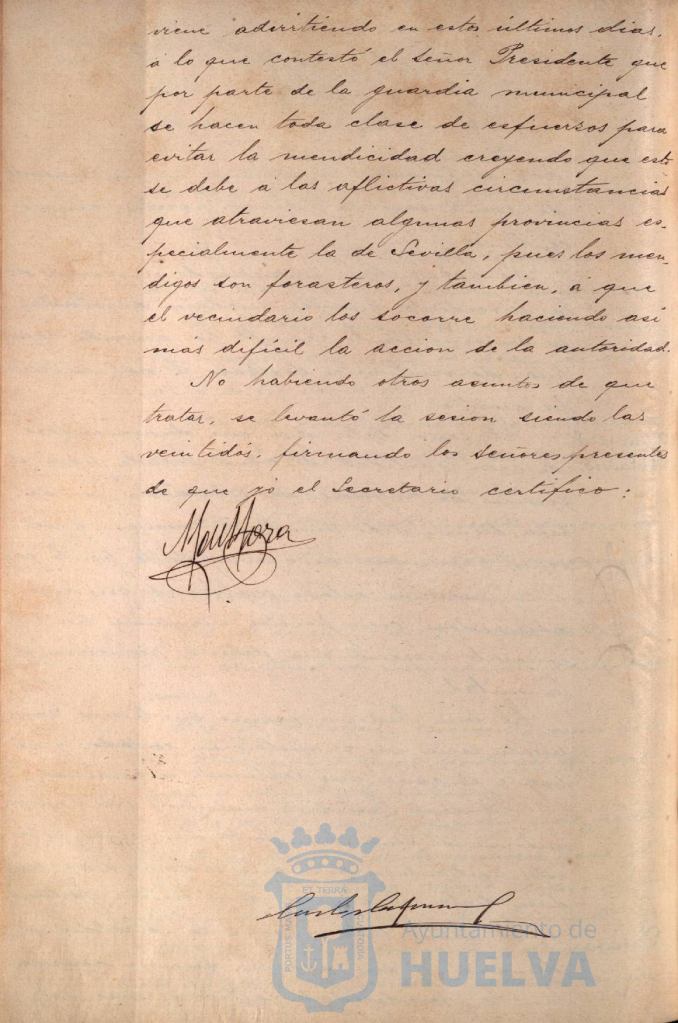 viene advirtiendo en estos últimos dias,
á lo que contestó el señor Presidente que
por parte de la guardia municipal
se hacen toda clase de esfuerzos para
evitar la mendicidad creyendo que esto
se debe á las aflictivas circunstancias
que atraviesan algunas provincias es-
pecialmente la de Sevilla, pues los men-
digos son forasteros, y tambien, á que
el vecindario los socorre haciendo asi
más difícil la accion de la autoridad.
No habiendo otros asuntos de que
tratar, se levantó la sesion siendo las
veintidós, firmando los señores presentes
de que yó el Secretario certifico:
ET TERRÆ
PORTUS MARIS
CUSTODIA
Ayuntamiento de
HUELVA